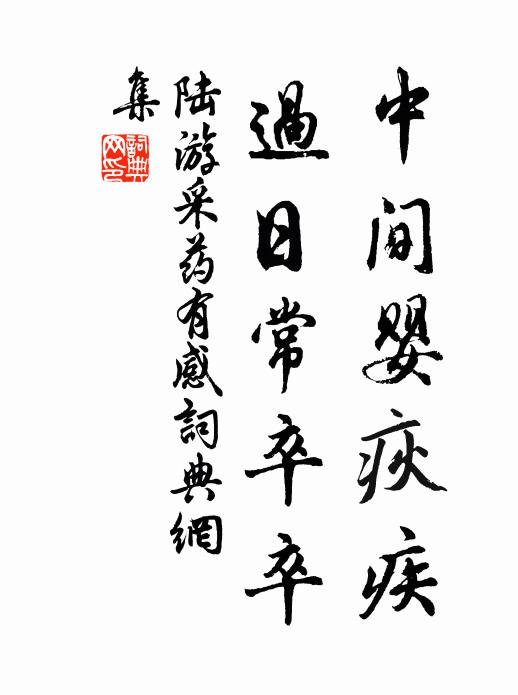 中间婴疢疾
過日常卒卒
陆游采药有感詞典網
集
詞典网印